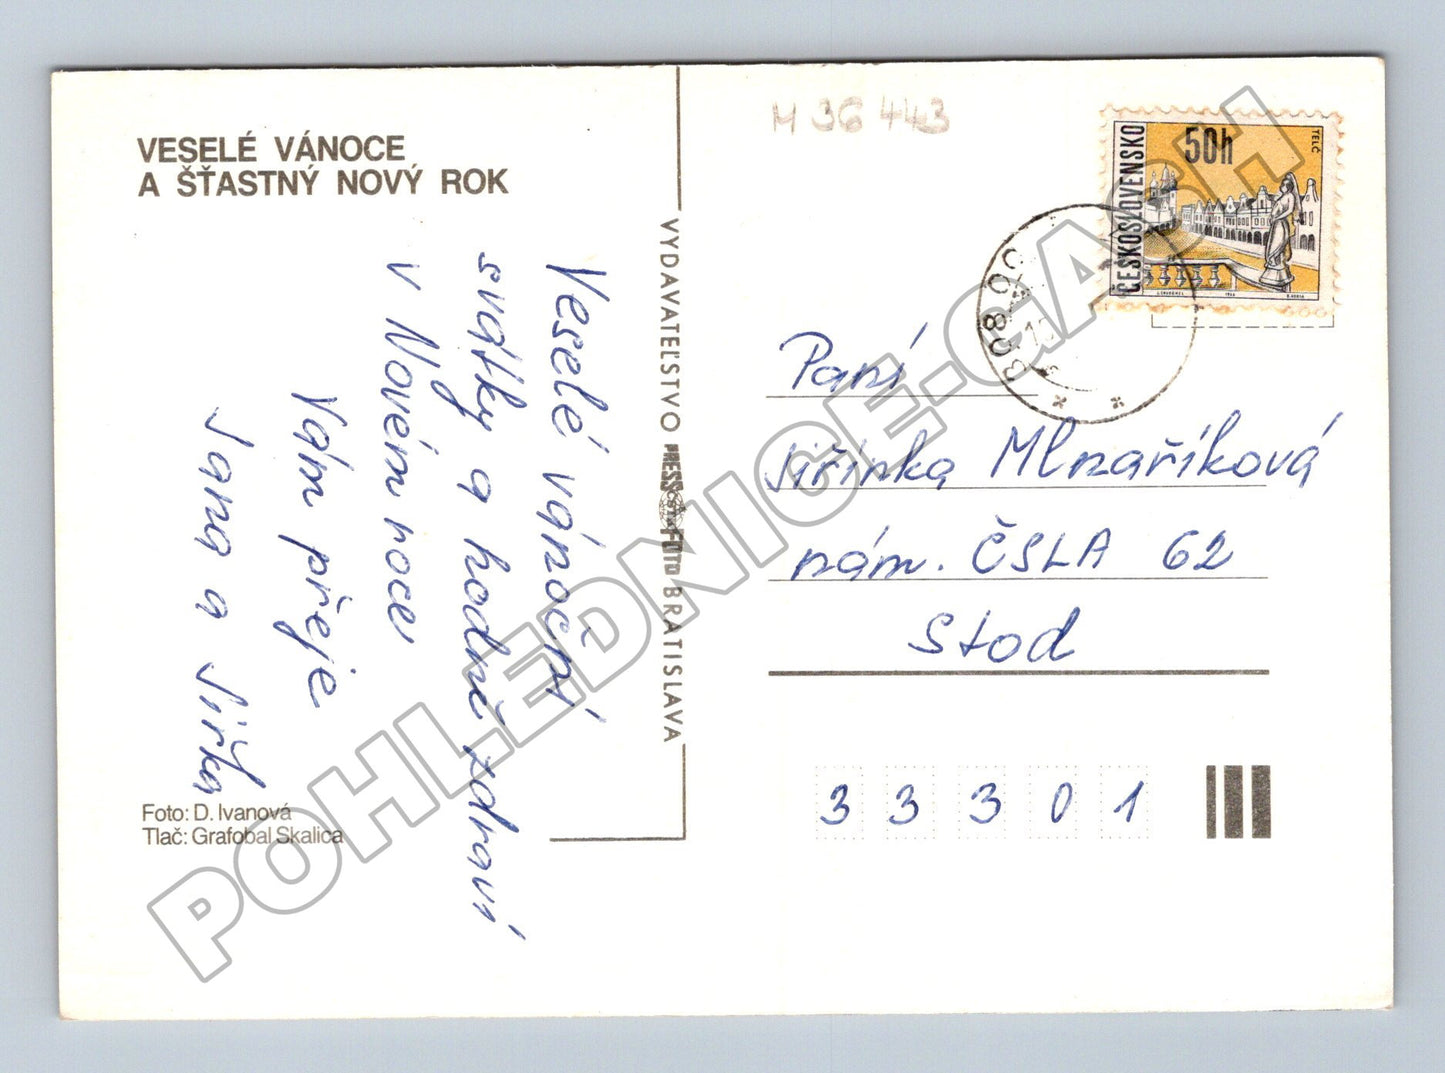 VESELÉ VÁNOCE
A ŠŤASTNÝ NOVÝ ROK
Veselé vánoční
svátky a hodně zdraví
v Novém roce
Vám přeje
Jana a Jirka
Foto: D. Ivanová
Tlač: Grafobal Skalica
VYDAVATEĽSTVO PRESSFOTO BRATISLAVA
M 36 443
ČESKOSLOVENSKO
50h
TELČ
1966
308 00
Paní
Jiřinka Mlnaříková
nám. ČSLA 62
Stod
3 3 3 0 1
POHLEDNICE-GASH